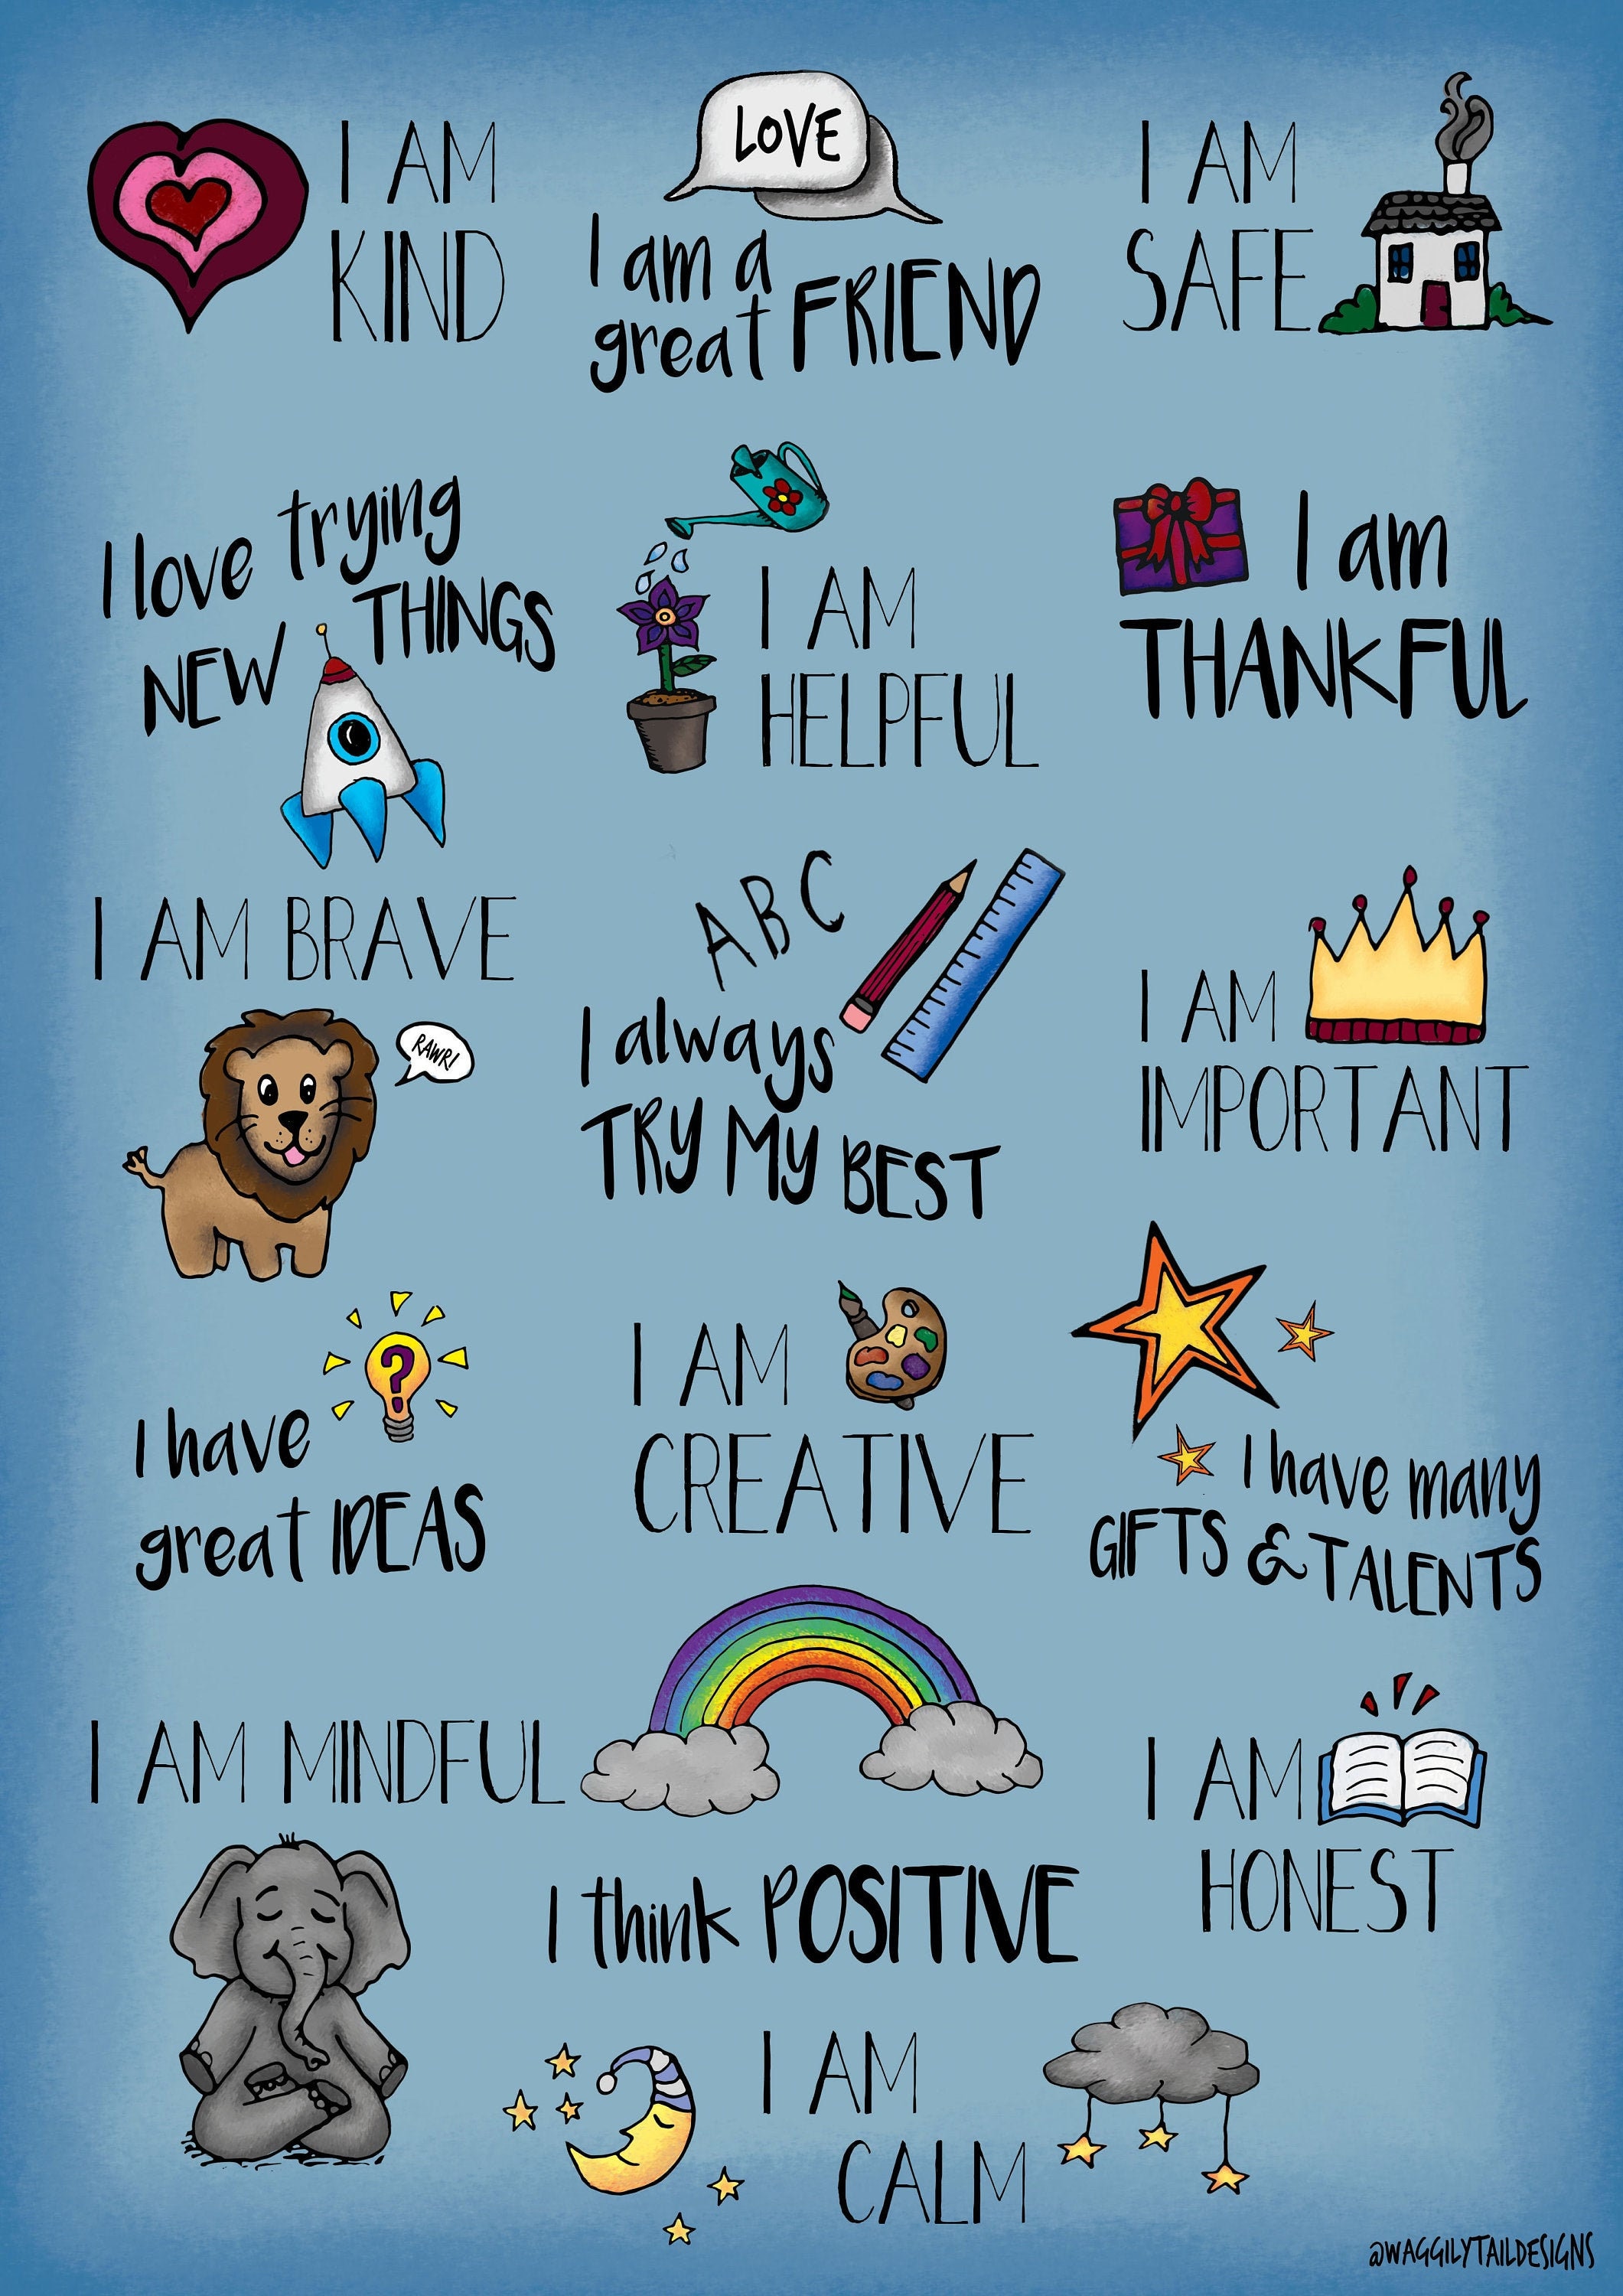 I AM
KIND
LOVE
I am a
great FRIEND
I AM
SAFE
I love trying
NEW THINGS
I AM
HELPFUL
I am
THANKFUL
I AM BRAVE
RAWR!
A B C
I always
TRY MY BEST
I AM
IMPORTANT
?
I have
great IDEAS
I AM
CREATIVE
I have many
GIFTS & TALENTS
I AM MINDFUL
I think POSITIVE
I AM
HONEST
I AM
CALM
@WAGGILYTAILDESIGNS